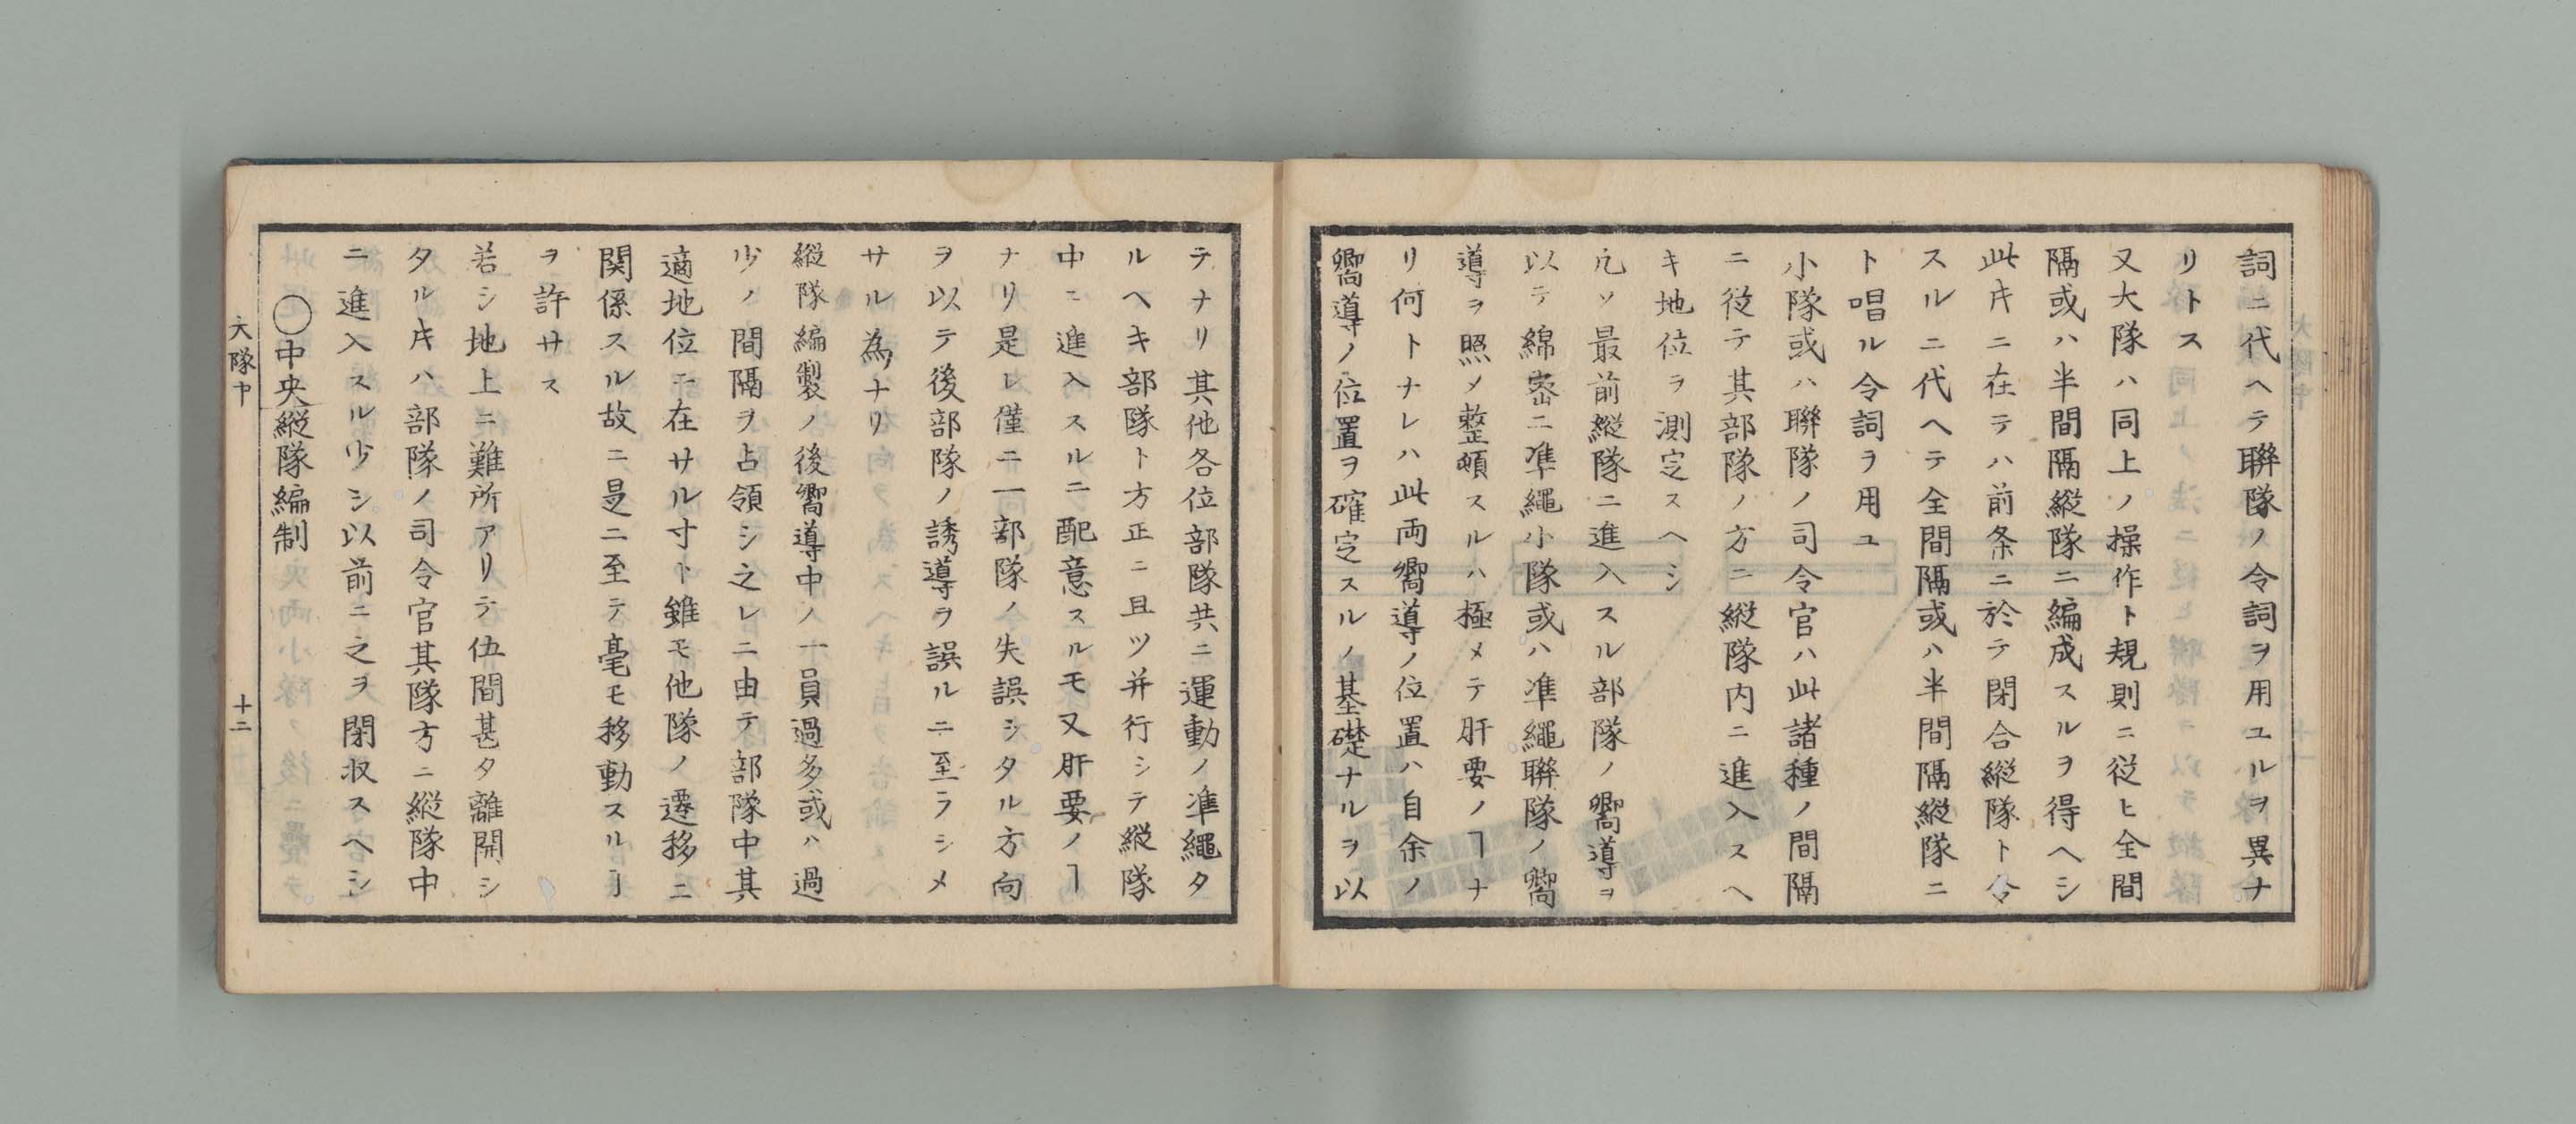 詞ニ代ヘテ聯隊ノ令詞ヲ用ユルヲ異ナ
リトス
又大隊ハ同上ノ操作ト規則ニ従ヒ全間
隔或ハ半間隔縦隊ニ編成スルヲ得ヘシ
此𪜈ニ在テハ前条ニ於テ閉合縦隊ト令
スルニ代ヘテ全間隔或ハ半間隔縦隊ニ
ト唱ル令詞ヲ用ユ
小隊或ハ聯隊ノ司令官ハ此諸種ノ間隔
ニ従テ其部隊ノ方ニ縦隊内ニ進入スヘ
キ地位ヲ測定スヘシ
凡ソ最前縦隊ニ進入スル部隊ノ嚮導ヲ
以テ綿密ニ凖繩小隊或ハ凖繩聯隊ノ嚮
導ヲ照メ整頓スルハ極メテ肝要ノヿナ
リ何トナレハ此両嚮導ノ位置ハ自余ノ
嚮導ノ位置ヲ確定スルノ基礎ナルヲ以
テナリ其他各位部隊共ニ運動ノ凖繩タ
ルヘキ部隊ト方正ニ且ツ并行シテ縦隊
中ニ進入スルニ配意スルモ又肝要ノヿ
ナリ是レ僅ニ一部隊ノ失誤シタル方向
ヲ以テ後部隊ノ誘導ヲ誤ルニ至ラシメ
サル為ナリ
縦隊編製ノ後嚮導中ノ一員過多或ハ過
少ノ間隔ヲ占領シ之レニ由テ部隊中其
適地位ニ在サル寸ト雖モ他隊ノ遷移ニ
関係スル故ニ是ニ至テ毫モ移動スルヿ
ヲ許サス
若シ地上ニ難所アリテ伍間甚タ離開シ
タル𪜈ハ部隊ノ司令官其隊方ニ縦隊中
ニ進入スル少シ以前ニ之ヲ閉収スヘシ
〇中央縦隊編制
大隊中
十二